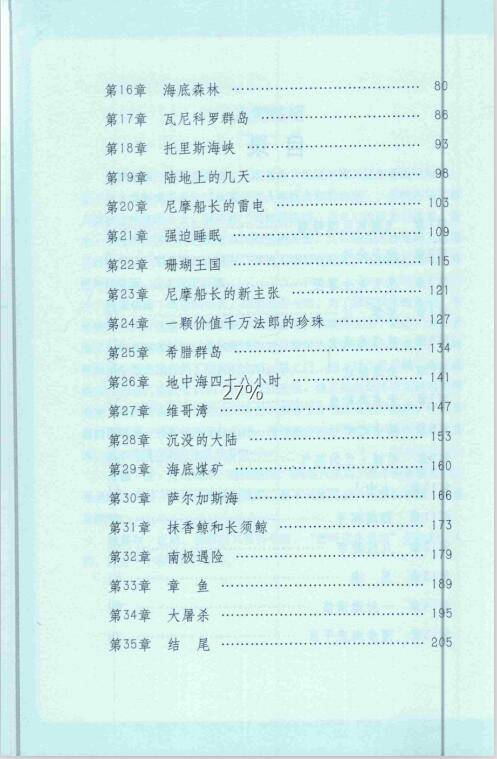 第16章 海底森林 …………………………… 80
第17章 瓦尼科罗群岛 …………………………… 86
第18章 托里斯海峡 …………………………… 93
第19章 陆地上的几天 …………………………… 98
第20章 尼摩船长的雷电 …………………………… 103
第21章 强迫睡眠 …………………………… 109
第22章 珊瑚王国 …………………………… 115
第23章 尼摩船长的新主张 …………………………… 121
第24章 一颗价值千万法郎的珍珠 …………………………… 127
第25章 希腊群岛 …………………………… 134
第26章 地中海四十八小时 …………………………… 141
27%
第27章 维哥湾 …………………………… 147
第28章 沉没的大陆 …………………………… 153
第29章 海底煤矿 …………………………… 160
第30章 萨尔加斯海 …………………………… 166
第31章 抹香鲸和长须鲸 …………………………… 173
第32章 南极遇险 …………………………… 179
第33章 章 鱼 …………………………… 189
第34章 大屠杀 …………………………… 195
第35章 结 尾 …………………………… 205